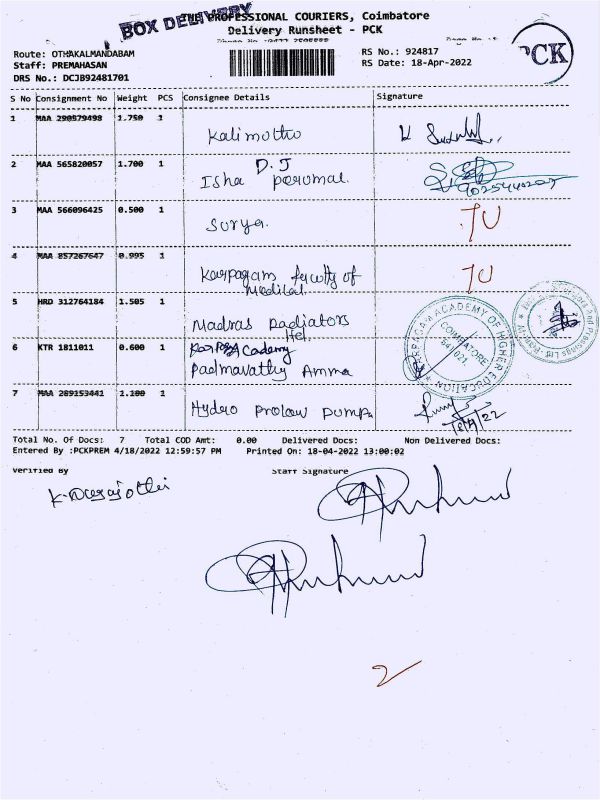 BOX DELIVERY
THE PROFESSIONAL COURIERS, Coimbatore
Delivery Runsheet - PCK
PCK
Route: OTHAKALMANDABAM
RS No.: 924817
Staff: PREMAHASAN
RS Date: 18-Apr-2022
DRS No.: DCJB92481701
S No Consignment No Weight PCS Consignee Details Signature
1 MAA 290579498 1.750 1
Kalimuthu
2 MAA 565820057 1.700 1
D.J
Isha perumal
3 MAA 566096425 0.500 1
Surya.
4 MAA 857267647 0.995 1
Karpagam faculty of
Medical
5 HRD 312764184 1.505 1
Madras Radiators
6 KTR 1811011 0.600 1
Padmavathy Amma
7 MAA 289153441 1.100 1
Hydro Prolow Pumps
KARPAGAM ACADEMY OF HIGHER EDUCATION
COIMBATORE
641 021.
Total No. Of Docs: 7 Total COD Amt: 0.00 Delivered Docs: Non Delivered Docs:
Entered By :PCKPREM 4/18/2022 12:59:57 PM Printed On: 18-04-2022 13:00:02
Verified By Staff Signature
2